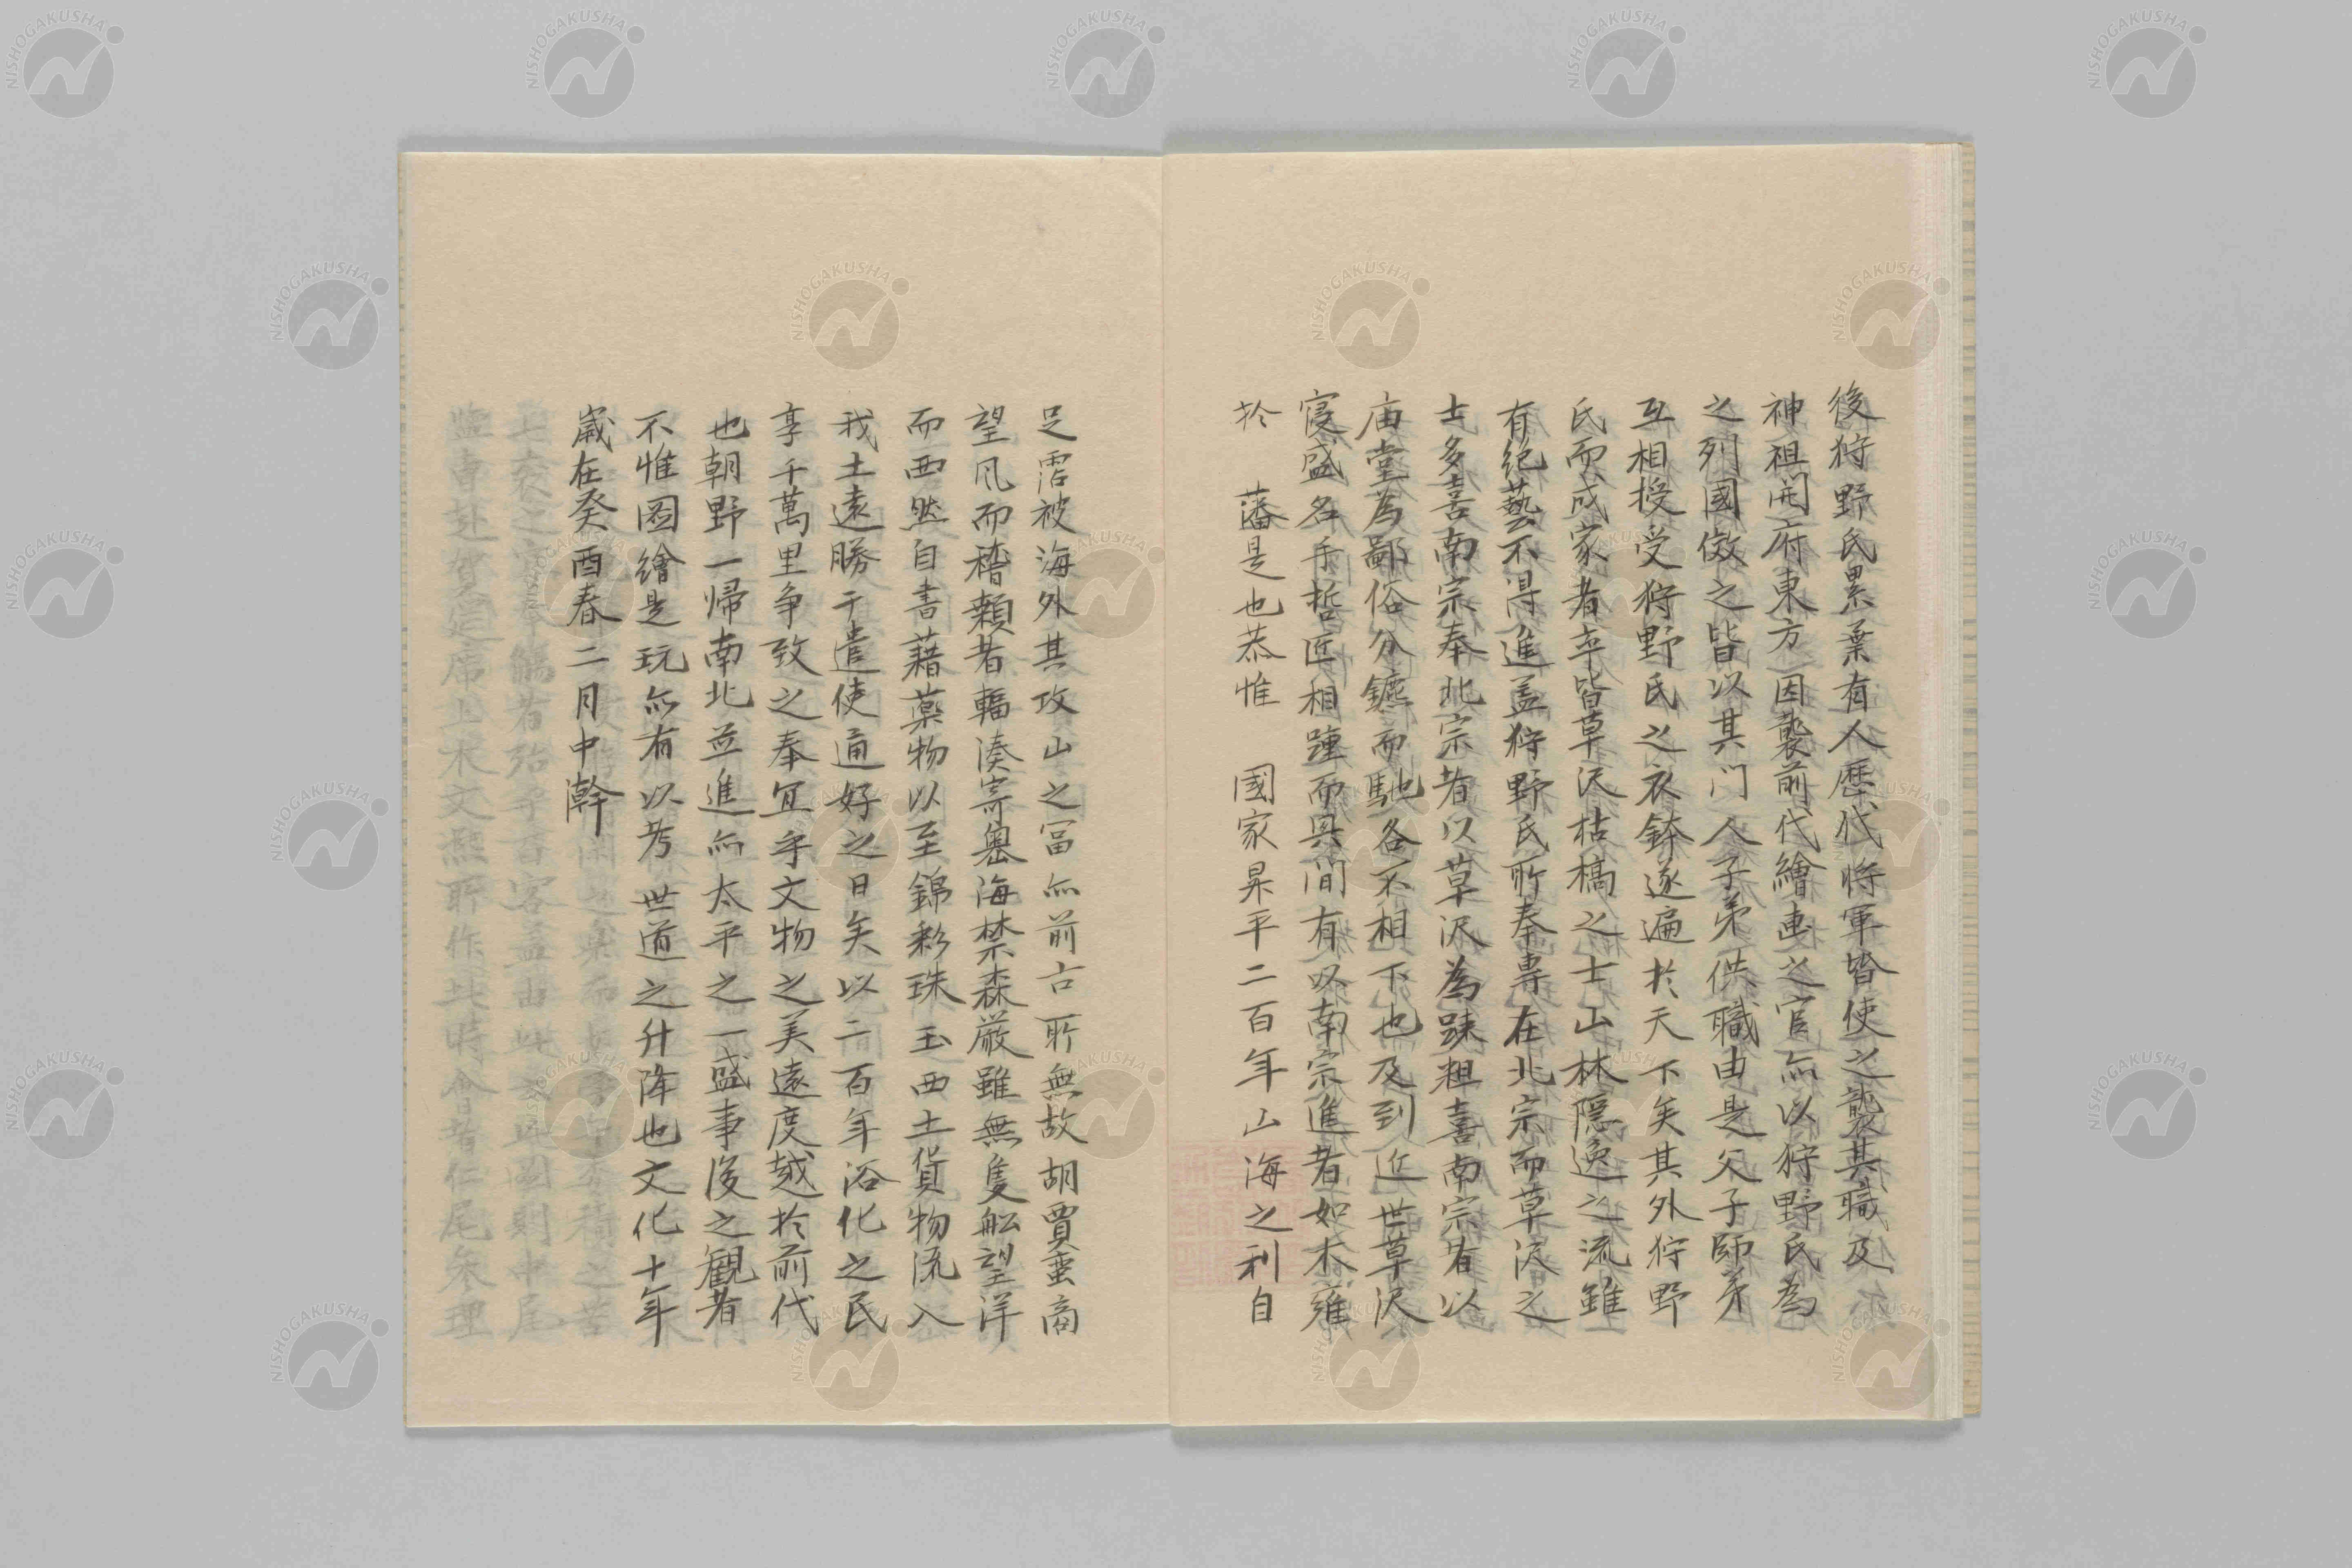 後狩野氏累葉有人歴代将軍皆使之襲其職及
神祖開府東方因襲前代繪畫之官亦以狩野氏為
之列國倣之皆以其门人子弟供職由是父子師弟
互相授受狩野氏之衣鉢遂遍於天下矣其外狩野
氏而成家者率皆草沢枯槁之士山林隠逸之流雖
有絶藝不得進盖狩野氏所奉專在北宗而草沢之
士多喜南宗奉北宗者以草沢為踈粗喜南宗者以
庙堂為鄙俗分鑣而馳各不相下也及到近世草沢
寖盛名手哲匠相踵而興間有以南宗進者如木雍
於　藩是也恭惟　國家昇平二百年山海之利自
足霑被海外其攻山之冨亦前古所無故胡賈蛮商
望凡而稽顙者輻湊寄奥海禁森厳雖無隻舩望洋
而西然自書藉薬物以至錦彩珠玉西土貨物流入
我土遠勝于遣使通好之日矣以二百年浴化之民
享千萬里争致之奉冝乎文物之美遠度越於前代
也朝野一帰南北並進亦太平之一盛事後之觀者
不惟圖繪是玩亦有以考世道之升降也文化十年
歳在癸酉春二月中澣
NISHOGAKUSHA